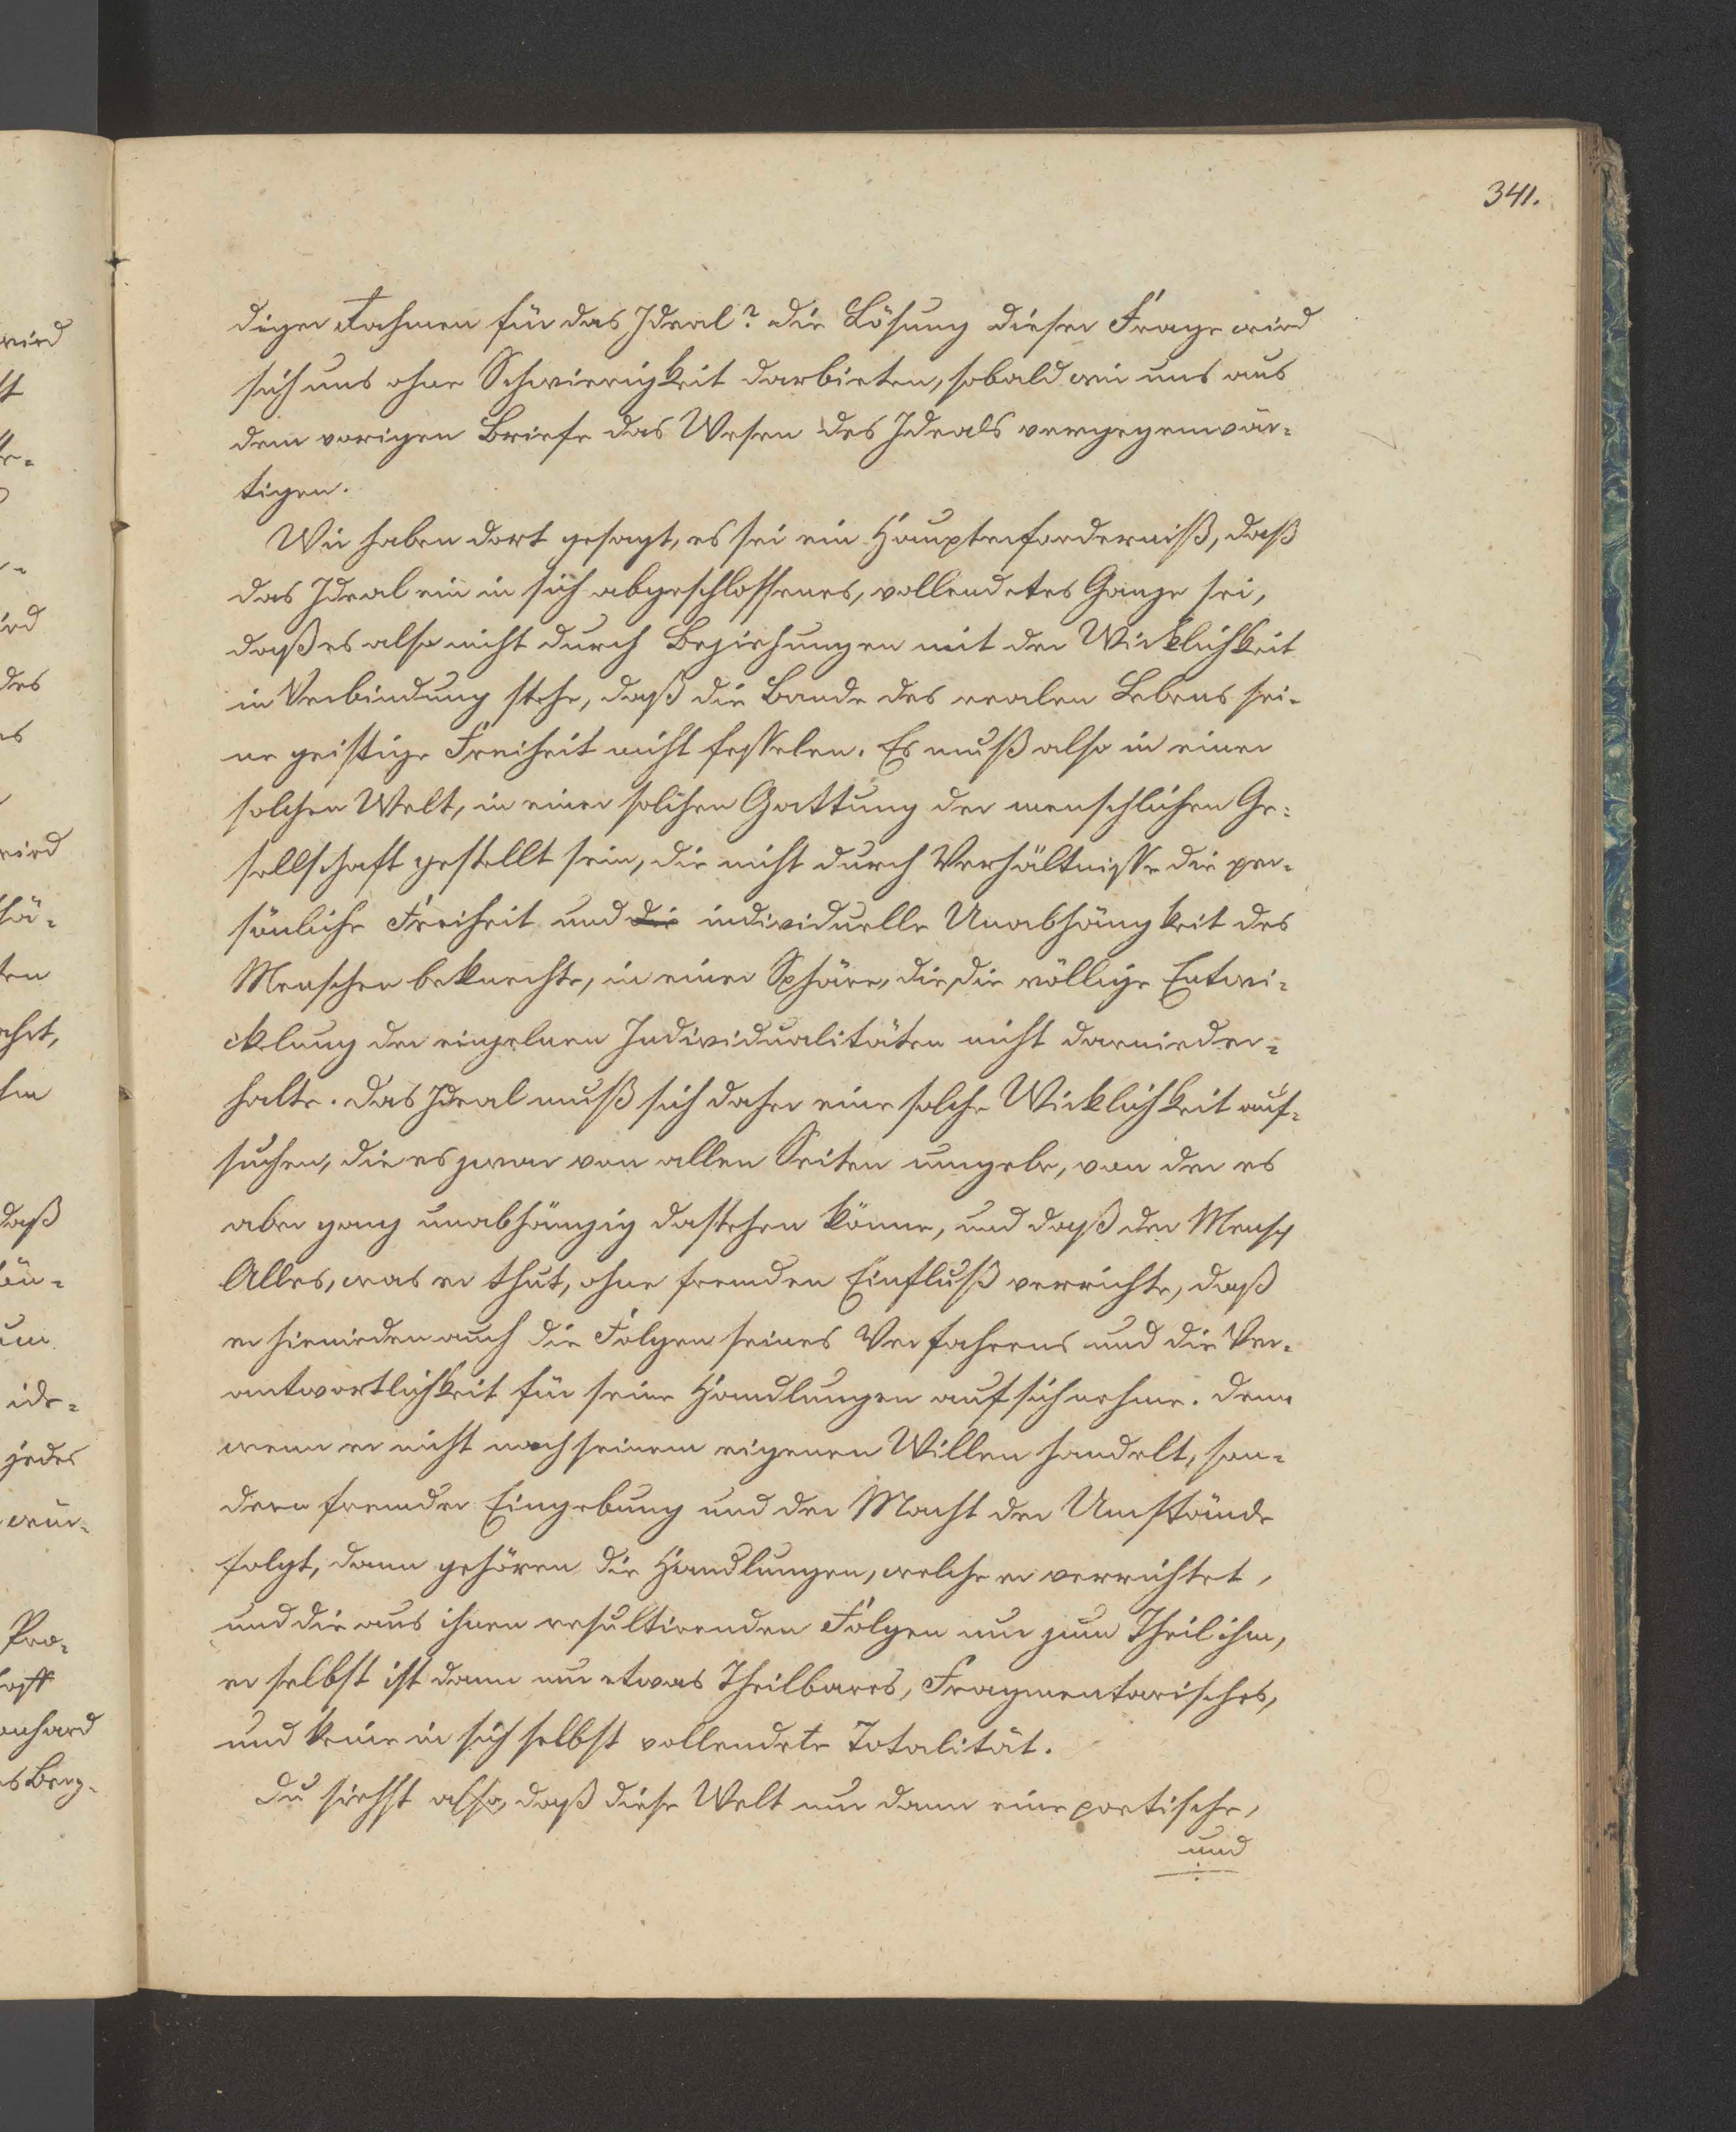 341.
diger Rahmen für das Ideal? die Lösung dieser Frage wird
sich uns ohne Schwierigkeit darbieten, sobald wir uns aus
dem vorigen Briefe das Wesen des Ideals vergegenwär-
tigen.
Wir haben dort gesagt, es sei ein Haupterforderniß, daß
das Ideal ein in sich abgeschlossenes, vollendetes Ganze sei,
daß es also nicht durch Beziehungen mit der Wirklichkeit
in Verbindung stehe, daß die Bande des realen Lebens sei-
ne geistige Freiheit nicht fesselen. Es muß also in einer
solchen Welt, in einer solchen Gattung der menschlichen Ge-
sellschaft gestellt sein, die nicht durch Verhältnisse die per-
sönliche Freiheit und die individuelle Unabhängkeit des
Menschen beknechte, in einer Sphäre, die die völlige Entwi-
cklung der einzelnen Individualitäten nicht darnieder-
halte. Das Ideal muß sich daher eine solche Wirklichkeit auf-
suchen, die es zwar von allen Seiten umgebe, von der es
aber ganz unabhängig dastehen könne, und daß der Mensch
Alles, was er thut, ohne fremden Einfluß verrichte, daß
er hienieden auch die Folgen seines Verfahrens und die Ver-
antwortlichkeit für seine Handlungen auf sich nehme. Denn
wenn er nicht nach seinem eigenen Willen handelt, son-
dern fremder Eingebung und der Macht der Umstände
folgt, dann gehören die Handlungen, welche er verrichtet,
und die aus ihnen resultirenden Folgen nur zum Theil ihm,
er selbst ist dann nur etwas Theilbares, Fragmentarisches,
und keine in sich selbst vollendete Totalität.
Du siehst also, daß diese Welt nur dann eine poetische,
und